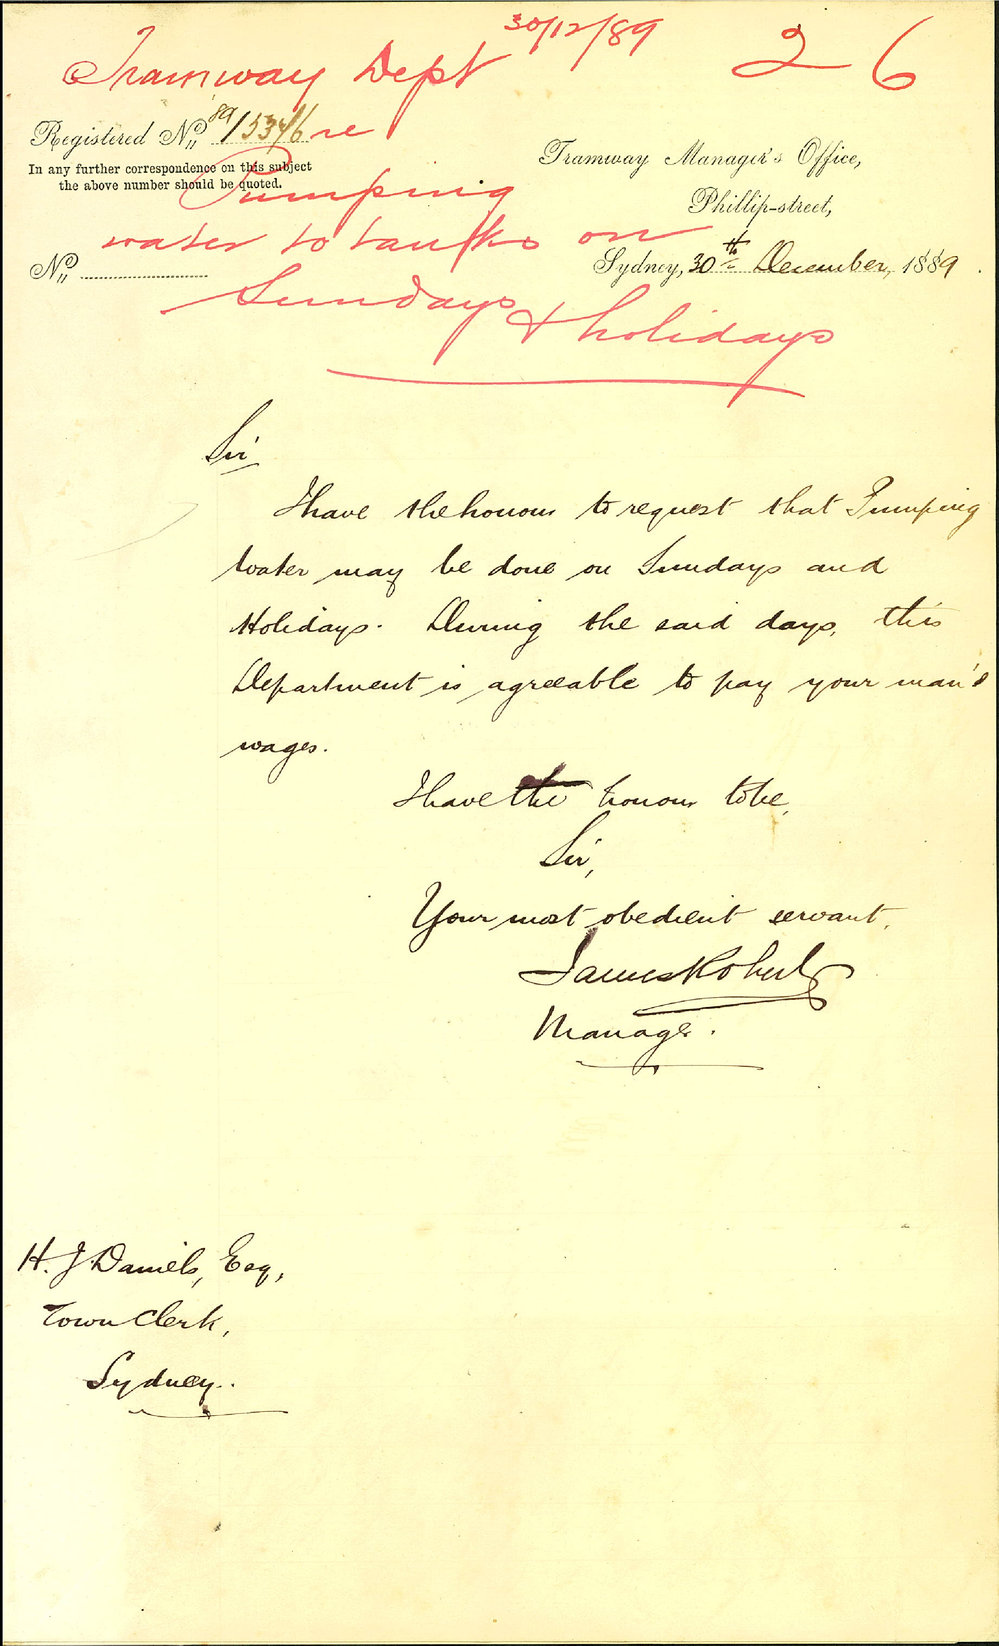 30/12/89
Tramway Dept
26
Registered No. 89/15346 re
In any further correspondence on this subject
the above number should be quoted.
Tramway Manager's Office,
Phillip-street,
Pumping
water to tanks on
No.
Sydney, 30th December, 1889.
Sundays & holidays
Sir
I have the honour to request that Pumping
water may be done on Sundays and
Holidays. During the said days, this
Department is agreeable to pay your man's
wages.
I have the honour to be,
Sir,
Your most obedient servant,
James Roberts
Manager.
H. J Daniels, Esq,
Town Clerk,
Sydney.